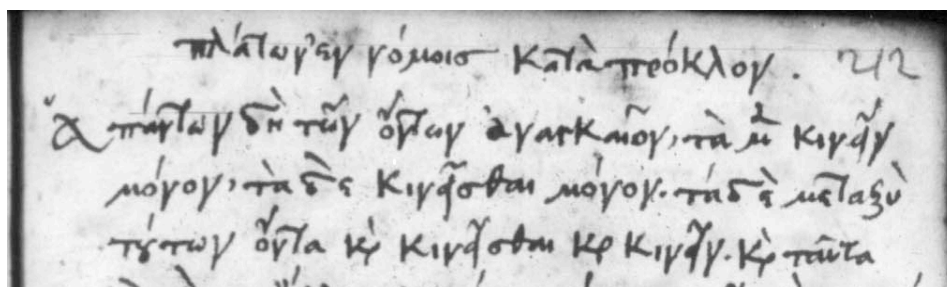 πλάτων ἐν νόμοις κατὰ πρόκλον. 212
ἁπάντων δὴ τῶν ὄντων ἀναγκαῖον, τὰ μὲν κινεῖν
μόνον, τὰ δὲ κινεῖσθαι μόνον. τὰ δὲ μεταξὺ
τούτων ὄντα καὶ κινεῖσθαι καὶ κινεῖν. καὶ ταῦτα